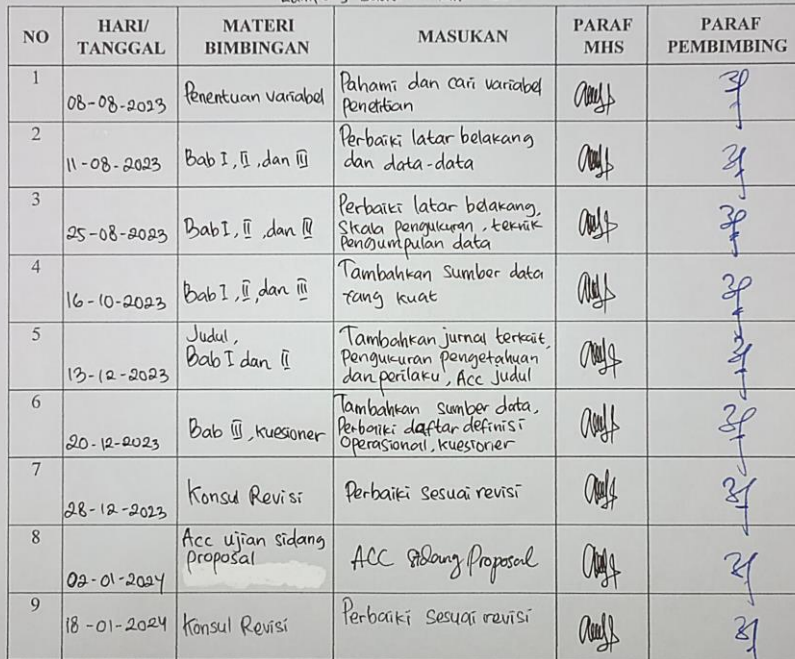 NO HARI/ TANGGAL MATERI BIMBINGAN MASUKAN PARAF MHS PARAF PEMBIMBING
1 08-08-2023 Penentuan variabel Pahami dan cari variabel
Penelitian
2 11-08-2023 Bab I, II, dan III Perbaiki latar belakang
dan data-data
3 25-08-2023 Bab I, II, dan III Perbaiki latar belakang,
Skala pengukuran, teknik
Pengumpulan data
4 16-10-2023 Bab I, II, dan III Tambahkan Sumber data
yang kuat
5 13-12-2023 Judul,
Bab I dan II
Tambahkan jurnal terkait,
Pengukuran pengetahuan
dan perilaku, Acc judul
6 20-12-2023 Bab III, kuesioner Tambahkan sumber data,
Perbaiki daftar definisi
Operasional, kuesioner
7 28-12-2023 Konsul Revisi Perbaiki sesuai revisi
8 02-01-2024 Acc ujian sidang
proposal
ACC sidang Proposal
9 18-01-2024 Konsul Revisi Perbaiki sesuai revisi